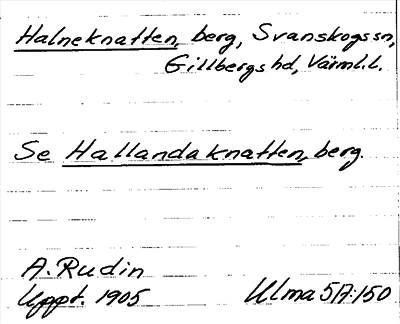 Halneknatten, berg, Svanskogs sn,
Gillbergs hd, Värml. l.
Se Hallandaknatten, berg.
A. Rudin
Uppt. 1905
Ulma 5A:150